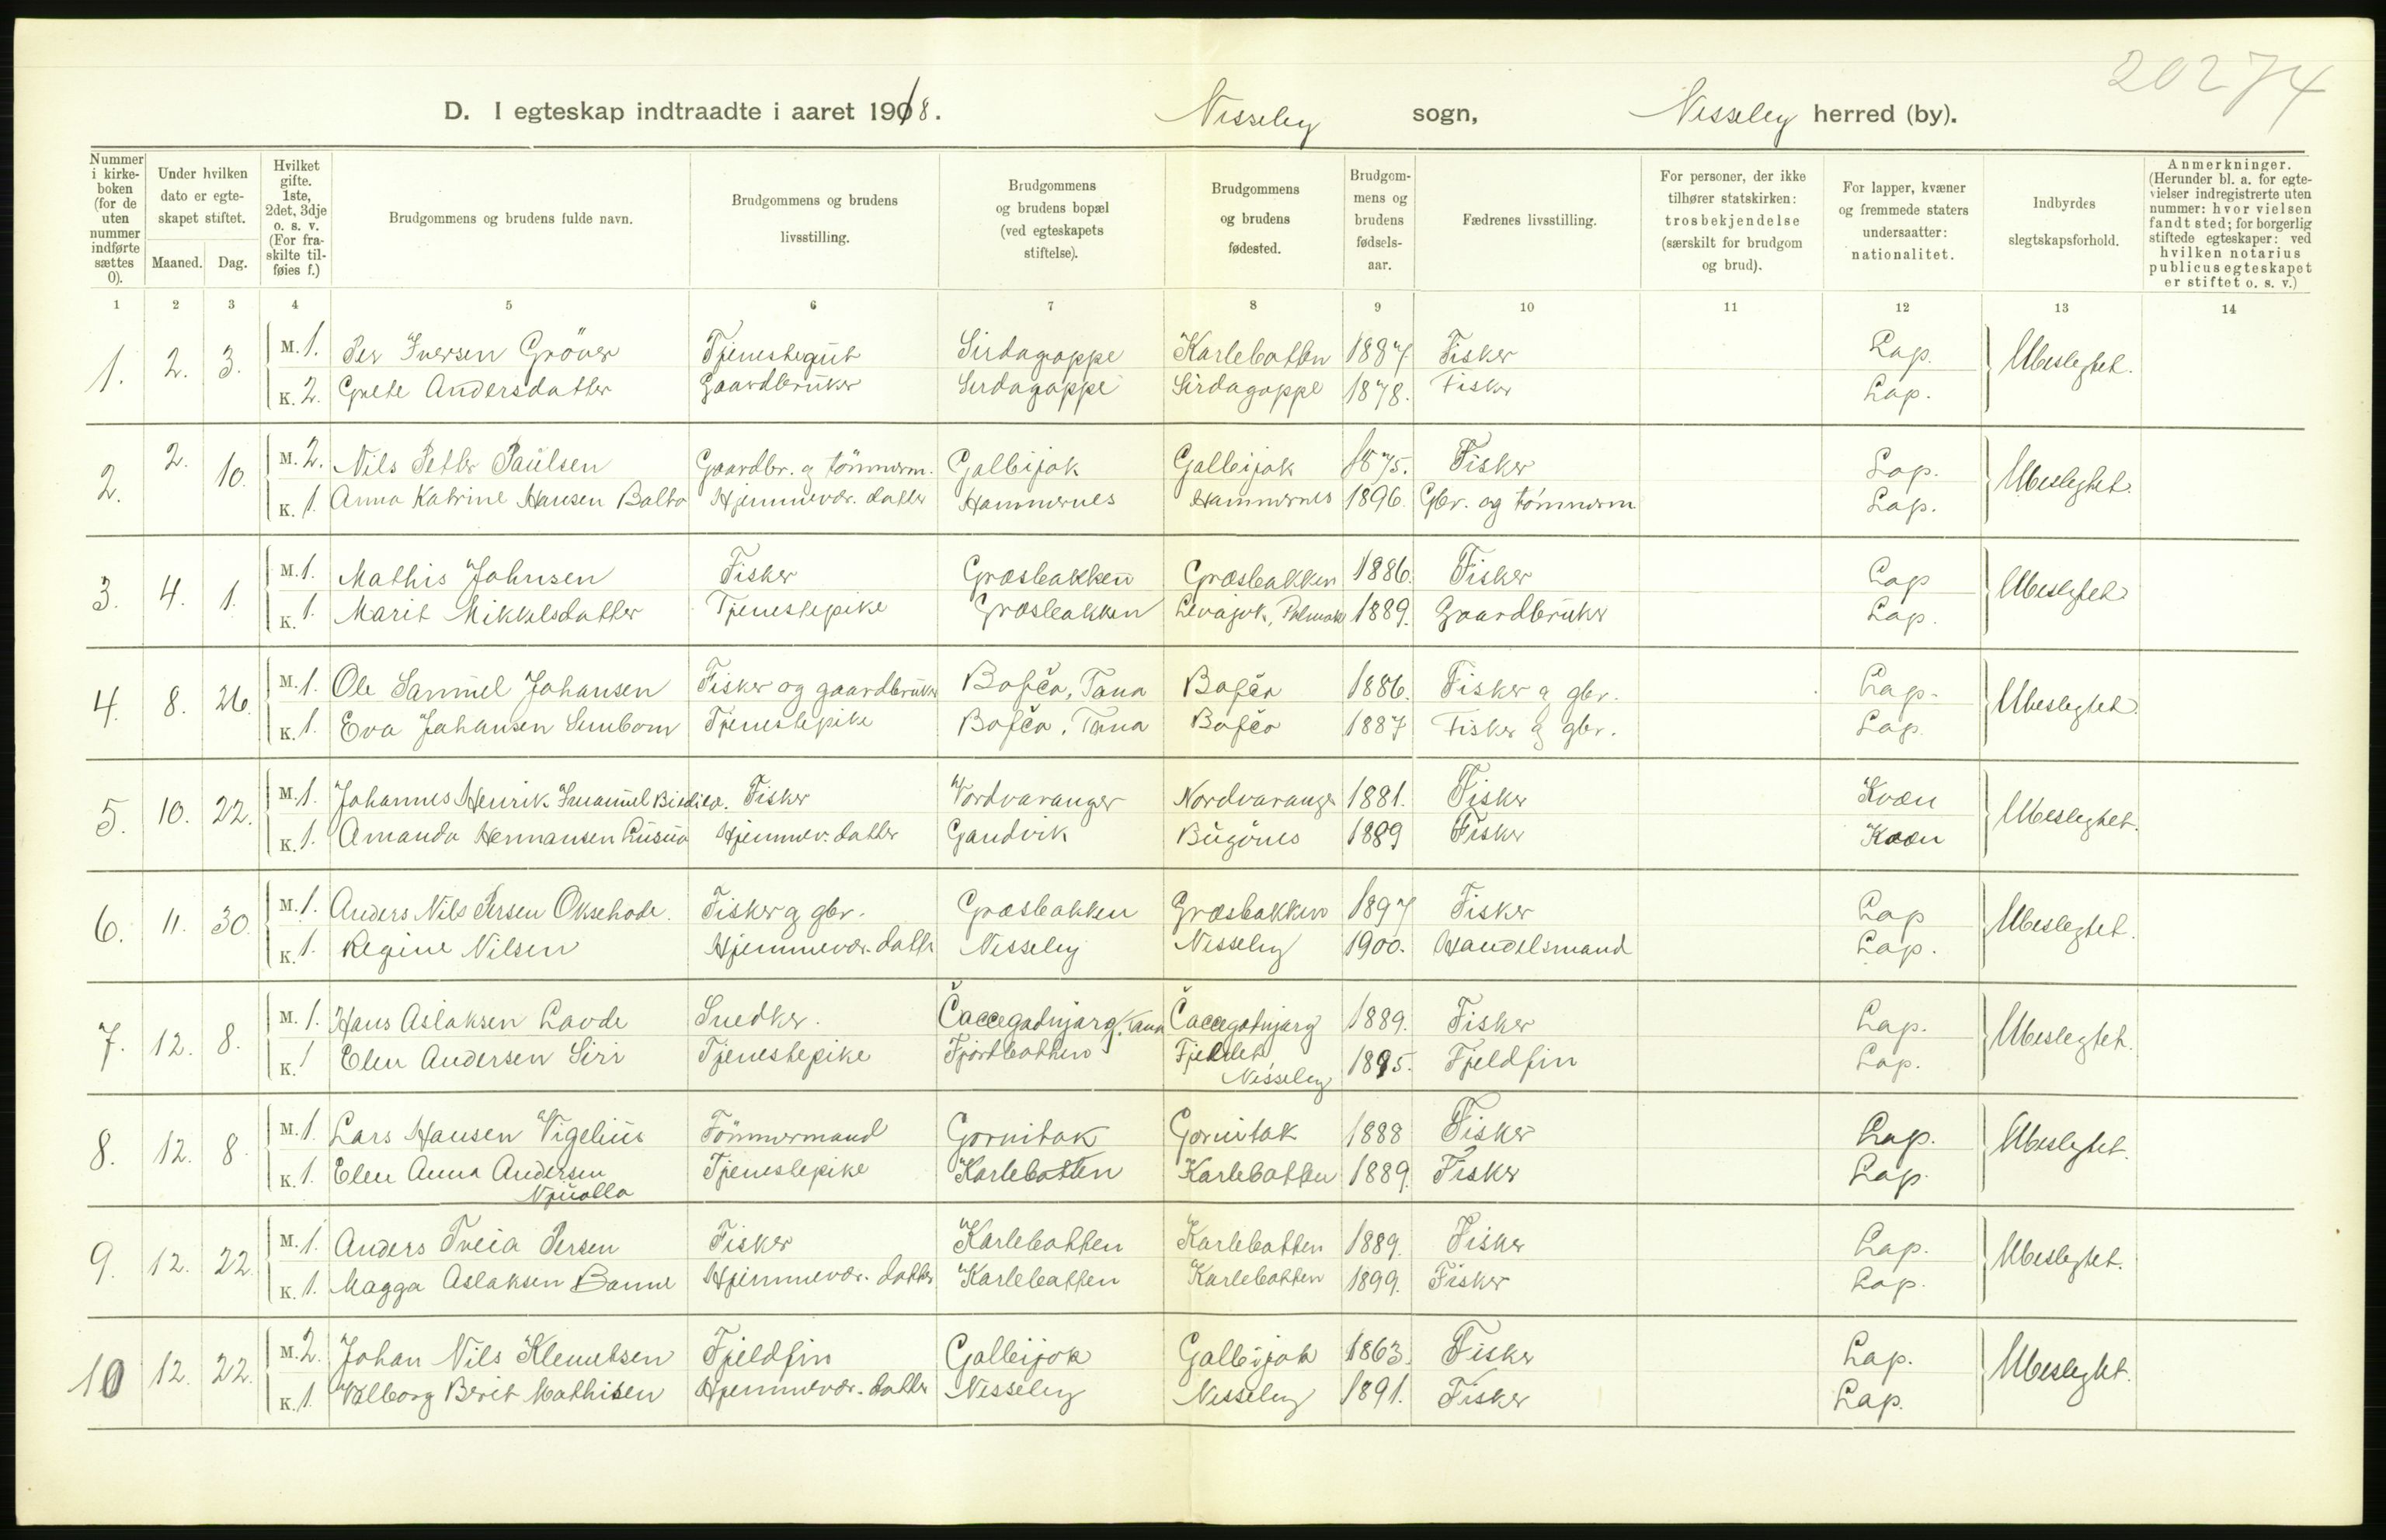 20274
D. I egteskap indtraadte i aaret 1918. Nesseby sogn, Nesseby herred (by).
Nummer i kirkeboken (for de uten nummer indførte sættes 0).
Under hvilken dato er egteskapet stiftet.
Maaned. Dag.
Hvilket gifte. 1ste, 2det, 3dje o. s. v. (For fraskilte tilføies f.)
Brudgommens og brudens fulde navn.
Brudgommens og brudens livsstilling.
Brudgommens og brudens bopæl (ved egteskapets stiftelse).
Brudgommens og brudens fødested.
Brudgommens og brudens fødselsaar.
Fædrenes livsstilling.
For personer, der ikke tilhører statskirken: trosbekjendelse (særskilt for brudgom og brud).
For lapper, kvæner og fremmede staters undersaatter: nationalitet.
Indbyrdes slegtskapsforhold.
Anmerkninger. (Herunder bl. a. for egtevielser indregistrerte uten nummer: hvor vielsen fandt sted; for borgerlig stiftede egteskaper: ved hvilken notarius publicus egteskapet er stiftet o. s. v.)
1 2 3 4 5 6 7 8 9 10 11 12 13 14
1. 2. 3. M. 1. Per Iversen Gröner Tjenestegut Sirdagoppe Karlebotten 1887 Fisker Lap. Ubeslegtet.
K. 2. Grete Andersdatter Gaardbruker Sirdagoppe Sirdagoppe 1878. Fisker Lap.
2. 2. 10. M. 2. Nils Petter Paulsen Gaardbr. og tömmerm. Galbijok Galbijok 1875. Fisker Lap. Ubeslegtet.
K. 1. Anna Katrine Hansen Balto Hjemmevær. datter Hammernes Hammernes 1896. Gbr. og tömmerm Lap.
3. 4. 1. M. 1. Mathis Johnsen Fisker Græsbakken Græsbakken 1886. Fisker Lap Ubeslegtet
K. 1. Marit Mikkelsdatter Tjenestepike Græsbakken Levajok, Polmak 1889. Gaardbruker Lap.
4. 8. 26. M. 1. Ole Samuel Johansen Fisker og gaardbruker Bofčo, Tana Bofčo 1886. Fisker og gbr. Lap. Ubeslegtet.
K. 1. Eva Johansen Tjenestepike Bofčo, Tana Bofčo 1887 Fisker og gbr. Lap.
5. 10. 22. M. 1. Johannes Henrik Imanuel Fisker Nordvaranger Nordvaranger 1881. Fisker Kvæn Ubeslegtet.
K. 1. Amanda Hermansen Hjemmev. datter Gandvik Bugönes 1889 Fisker Kvæn
6. 11. 30. M. 1. Anders Nils Persen Oksehode. Fisker og gbr. Græsbakken Græsbakken 1897 Fisker Lap Ubeslegtet.
K. 1. Regine Nilsen Hjemmevær. datter Nesseby Nesseby 1900. Handelsmand Lap.
7. 12. 8. M. 1. Hans Aslaksen Lavde Snedker. Čaccegadnjarg, Tana Čaccegadnjarg 1889. Fisker Lap. Ubeslegtet.
K. 1 Elen Andersen Siri Tjenestepike Fjordbotten Fjeldet Nesseby 1895. Fjeldfin Lap.
8. 12. 8. M. 1. Lars Hansen Vigelius Tömmermand Gornitak Gornitak 1888 Fisker Lap. Ubeslegtet.
K. 1. Elen Anna Andersen Njualla Tjenestepike Karlebotten Karlebotten 1889. Fisker Lap.
9. 12. 22. M. 1. Anders Persen Fisker Karlebotten Karlebotten 1889. Fisker Lap. Ubeslegtet.
K. 1. Magga Aslaksen Banne Hjemmevær. datter Karlebotten Karlebotten 1899. Fisker Lap.
10 12. 22. M. 2. Johan Nils Klemetsen Fjeldfin Galbijok Galbijok 1863. Fisker Lap. Ubeslegtet.
K. 1. Valborg Berit Mathisen Hjemmevær. datter Nesseby Nesseby 1891. Fisker Lap.